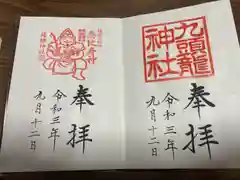 九頭龍
神社
奉拝
令和三年
九月十二日
奉拝
令和三年
九月十二日